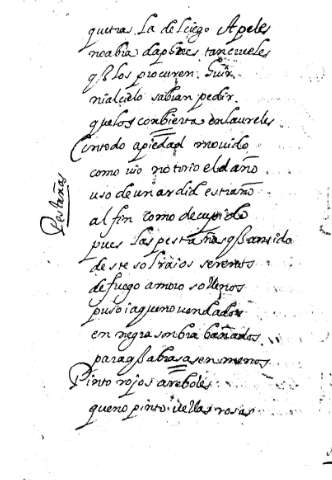 quetras La del ciego Apeles
no abia daphnes tan crueles
q̃ los procuren huir
ni al cielo sabian pedir
que los conbierta en laureles
Cupido a piedad movido
como vio notorio el daño
uso de un ardid estraño
al fin como de cupido
pues las pestañas q̃ an sido
de este sol raios serenos
de fuego amoroso llenos
puso ia que no vendados
en negra sonbra bañados
para q̃ abrasasen menos
Pestañas
Pinto rojos areboles
que no pinto de las rosas